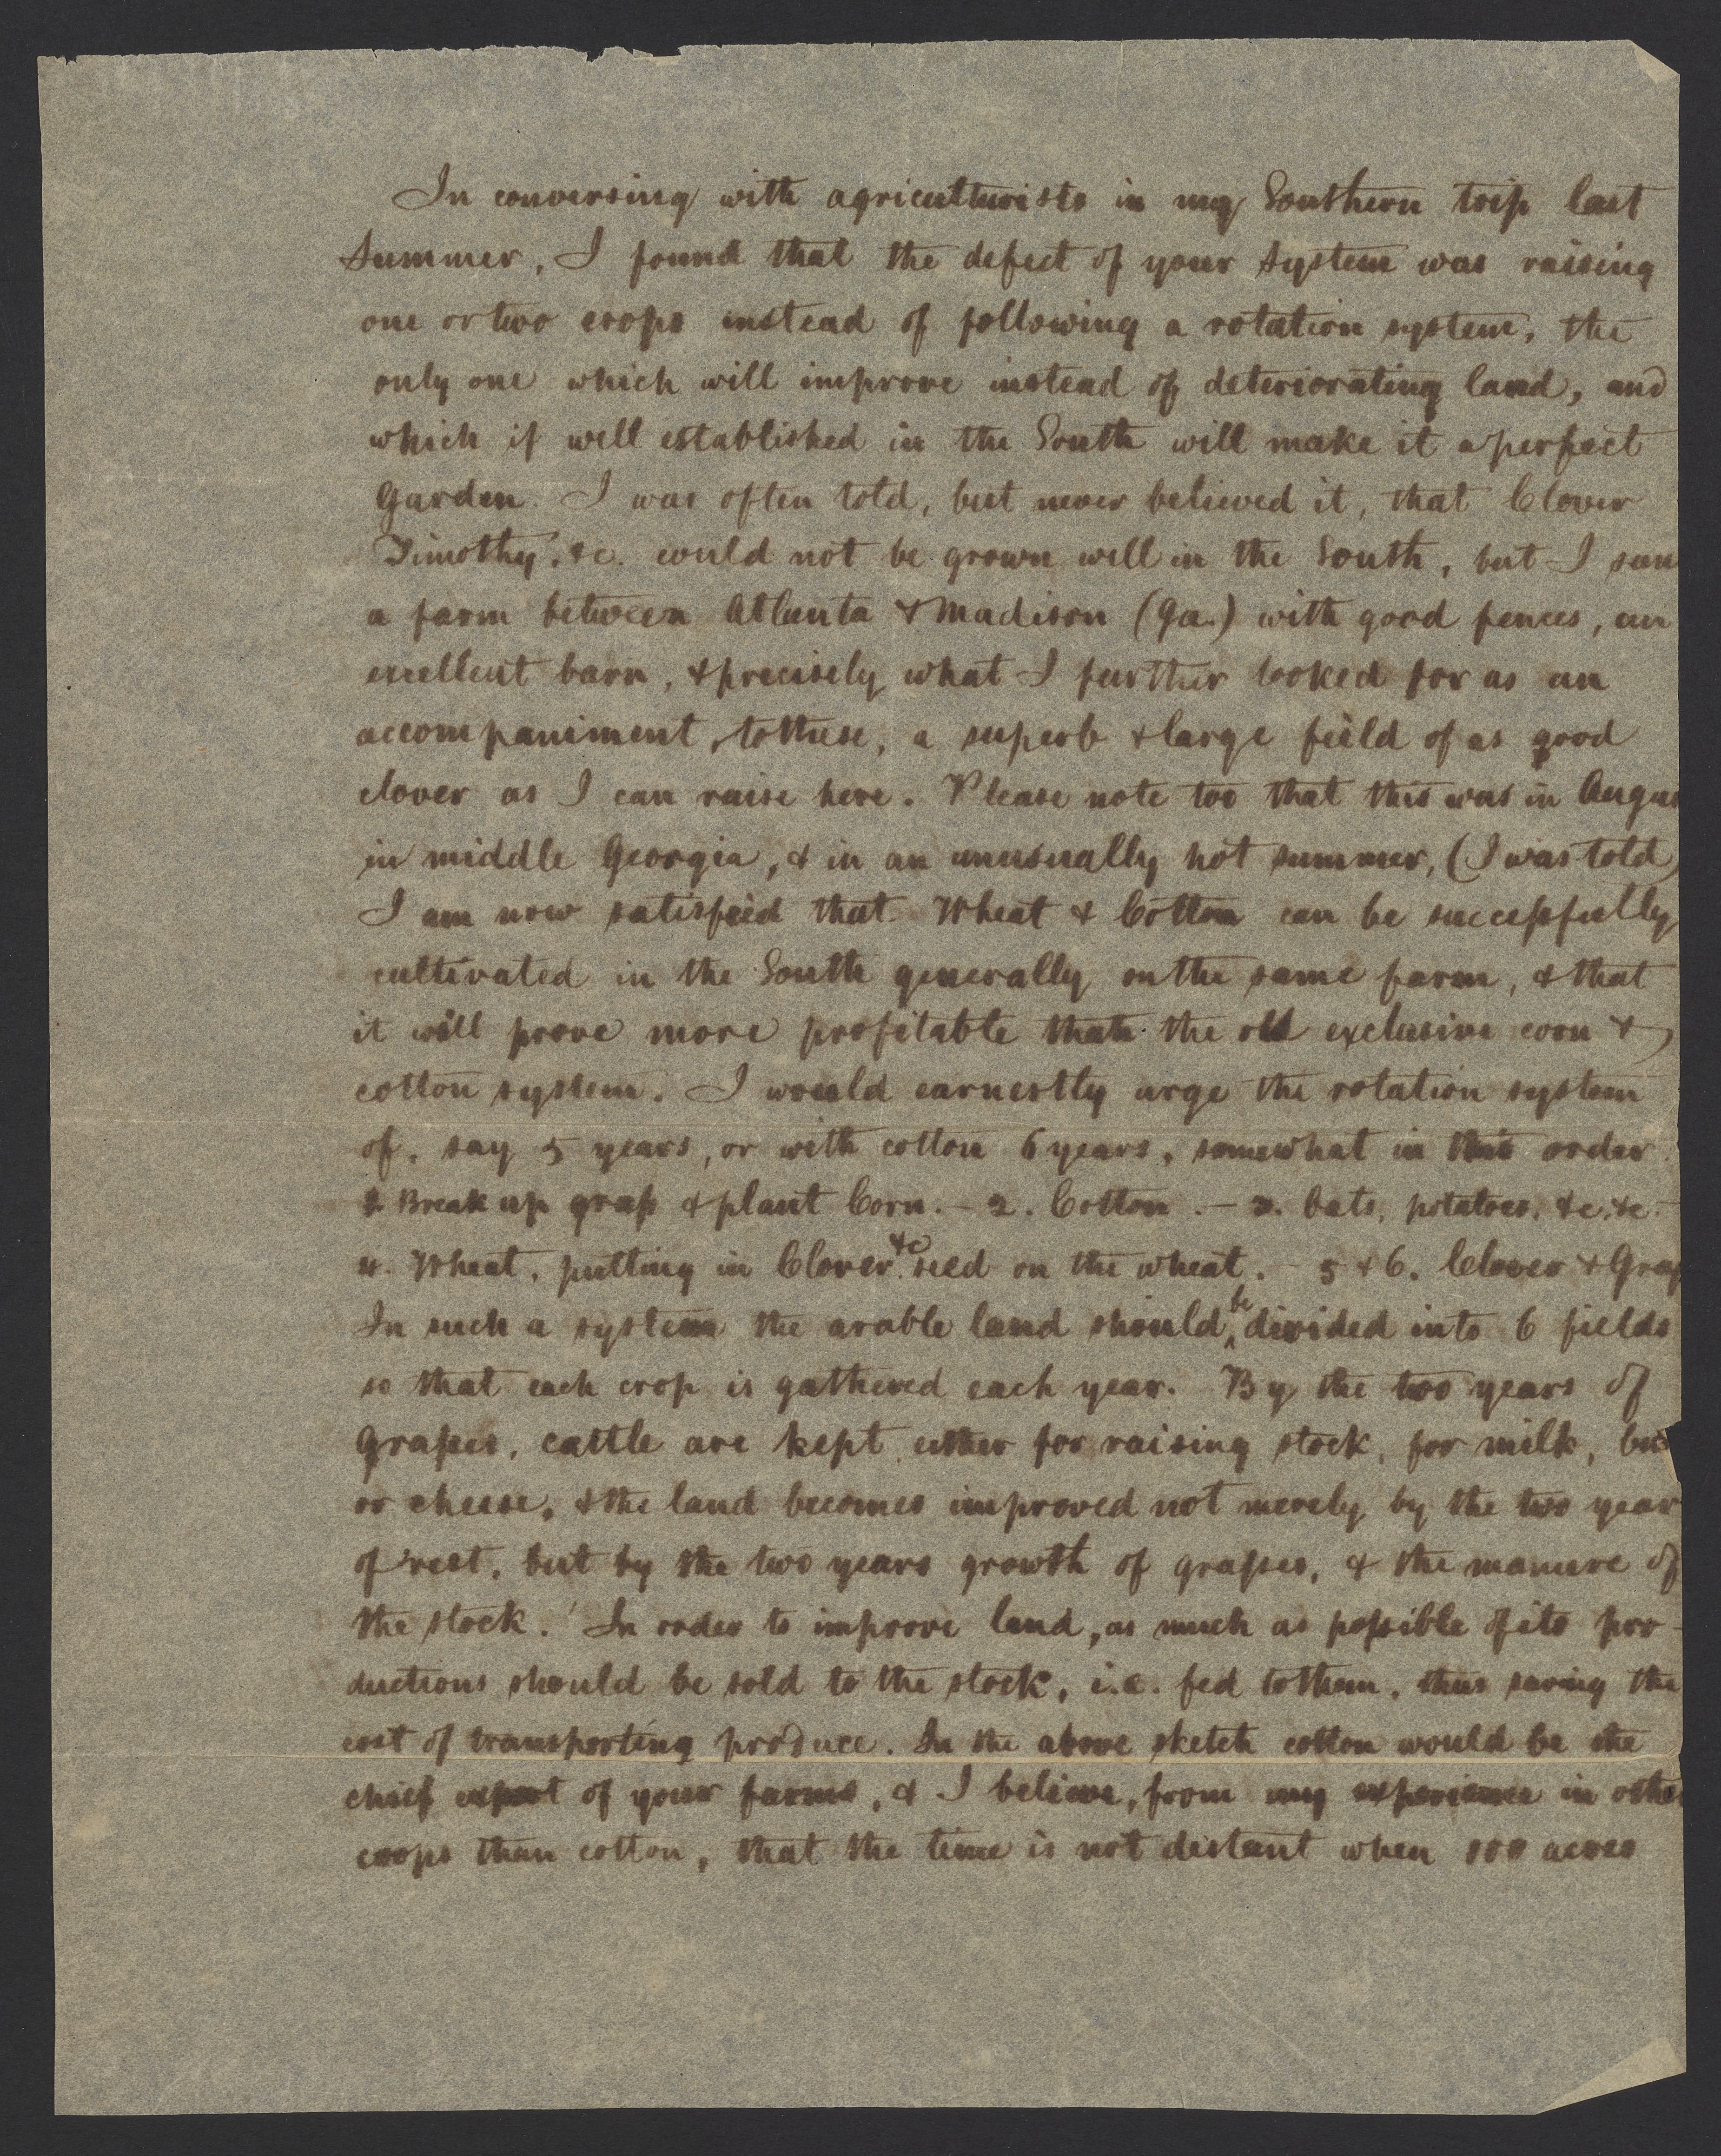 In conversing with agriculturists in my Southern trip last
Summer, I found that the defect of your system was raising
one or two crops instead of following a rotation system, the
only one which will improve instead of deteriorating land, and
which if well established in the South will make it a perfect
Garden. I was often told, but never believed it, that Clover
Timothy, &c. could not be grown well in the South, but I saw
a farm between Atlanta & Madison (Ga.) with good fences, an
excellent barn, & precisely what I further looked for as an
accompaniment, to these, a superb & large field of as good
clover as I can raise here. Please note too that this was in Augus
in middle Georgia, & in an unusually hot summer, (I was told)
I am now satisfied that Wheat & Cotton can be successfully
cultivated in the South generally on the same farm, & that
it will prove more profitable than the old exclusive corn &
cotton system. I would earnestly urge the rotation system
of, say 5 years, or with cotton 6 years, somewhat in this order.
1. Break up grass & plant Corn. - 2. Cotton. - 3. Oats, potatoes, &c. &c.
4. Wheat, putting in Clover &c seed on the wheat. - 5 & 6. Clover & Grass
In such a system the arable land should be divided into 6 fields
so that each crop is gathered each year. By the two years of
grasses, cattle are kept either for raising stock, for milk,
or cheese, & the land becomes improved not merely by the two year
of rest, but by the two years growth of grasses, & the manure of
the stock. In order to improve land, as much as possible of its pro-
ductions should be sold to the stock, i.e. fed to them, thus saving the
cost of transporting produce. In the above sketch cotton would be the
chief export of your farms, & I believe, from my experience in other
crops than cotton, that the time is not distant when 100 acres